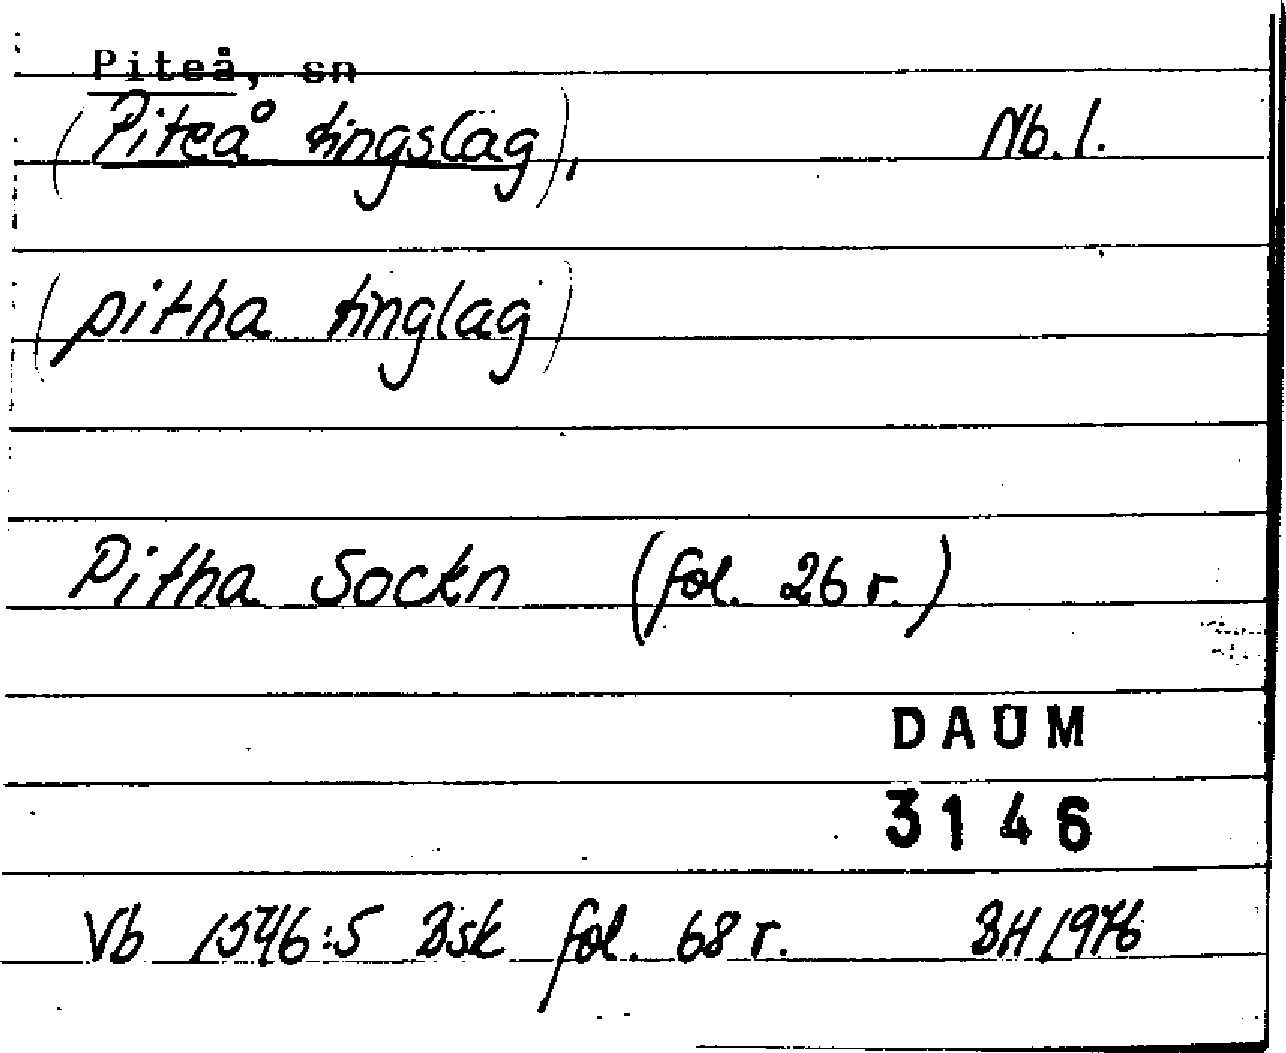 Piteå, sn
(Piteå tingslag), Nb. l.
(pitha tinglag)
Pitha Sockn (fol. 26 r.)
DAUM
3146
Vb 1546:5 Bsk fol. 68 r. BH 1976